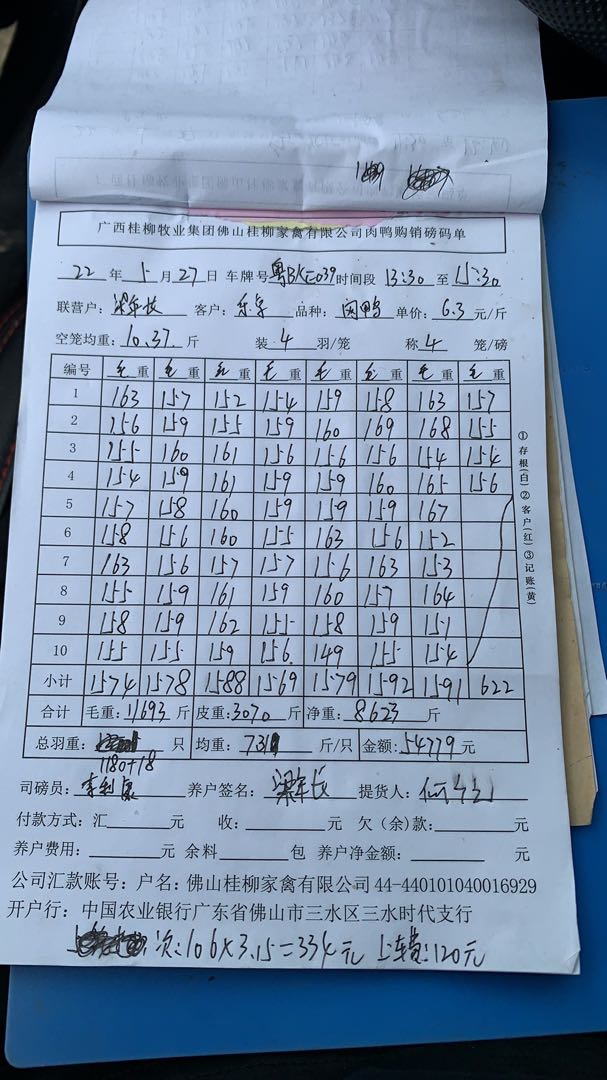 广西桂柳牧业集团佛山桂柳家禽有限公司肉鸭购销磅码单
22 年 5 月 27 日 车牌号 粤BKE039 时间段 13:30 至 15:30
联营户: 梁年长 客户: 品种: 肉鸭 单价: 6.3 元/斤
空笼均重: 10.37 斤 装 4 羽/笼 称 4 笼/磅
编号 毛重 毛重 毛重 毛重 毛重 毛重 毛重 毛重
1 163 157 152 154 159 158 163 157
2 156 159 155 159 160 169 168 155
3 155 160 161 156 156 156 154 154
4 154 159 161 159 159 160 165 156
5 157 158 160 159 159 159 167
6 158 156 160 155 163 156 152
7 163 156 157 157 156 163 153
8 155 159 161 159 160 157 164
9 158 159 162 155 158 159 151
10 155 155 159 156 149 155 154
小计 1574 1578 1588 1569 1579 1592 1591 622
合计 毛重: 11693 斤 皮重: 3070 斤 净重: 8623 斤
总羽重: 只 均重: 斤/只 金额: 54779 元
1180+18
司磅员: 养户签名: 梁年长 提货人:
付款方式: 汇 元 收: 元 欠(余)款: 元
养户费用: 元 余料 包 养户净金额: 元
公司汇款账号: 户名: 佛山桂柳家禽有限公司 44-440101040016929
开户行: 中国农业银行广东省佛山市三水区三水时代支行
次: 106×3.15=334元 上车费: 120元
①存根(白)②客户(红)③记账(黄)